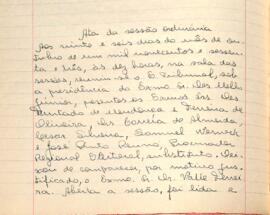 Ata da sessão ordinária
Aos vinte e seis dias do mês de ou-
tubro de um mil novecentos e sessen-
ta e três, às dez horas, na sala das
sessões, reuniu-se o E. Tribunal, sob
a presidência do Exmo. Sr. Des. Mello
presentes os Exmos. Srs. Des.
Furtado de Mendonça e Ferreira de
Oliveira, Drs. Correia de Almeida,
Cesar Silveira, Samuel Werneck
e José Pinto Renno, Procurador
Regional Eleitoral, substituto. Dei-
xou de comparecer, por motivo jus-
tificado, o Exmo. Sr. Dr. Valle Ferrei-
ra. Aberta a sessão, foi lida e